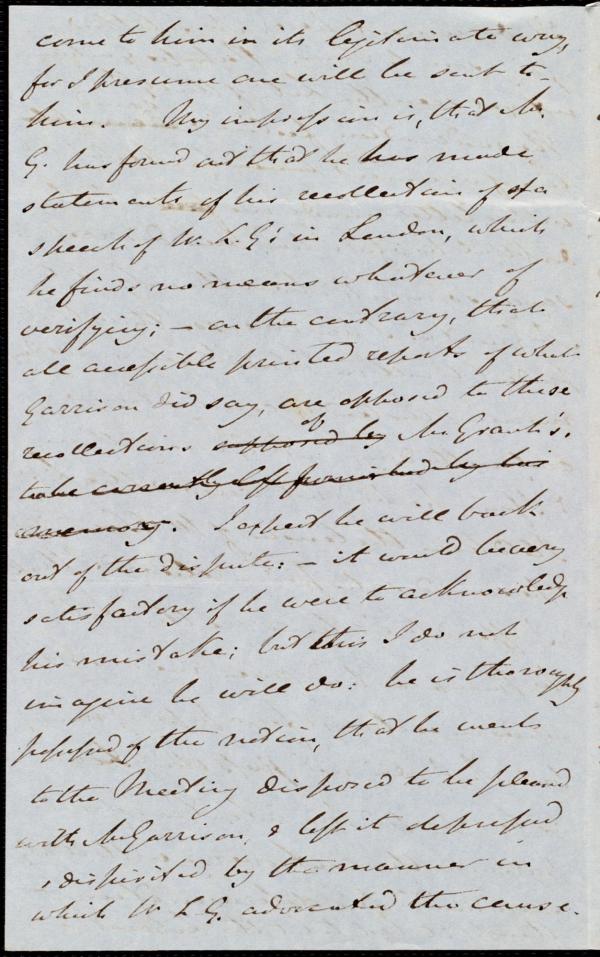 come to him in its legitimate way,
for I presume one will be sent to
him. My impression is, that Mr.
G. has found out that he has made
statements of his recollection of of a
speech of W. L. G's in London, which
he finds no means whatever of
verifying; — on the contrary, that
all accessible printed reports of what
Garrison did say, are opposed to these
recollections supposed by of Mr Grant's.
to be correctly furnished by his
memory. I expect he will back
out of the dispute: — it would be very
satisfactory if he were to acknowledge
his mistake; but this I do not
imagine he will do: he is thoroughly
possessed of the notion, that he went
to the Meeting disposed to be pleased
with Mr Garrison, & left it depressed
& dispirited by the manner in
which W L G. advocated the cause.